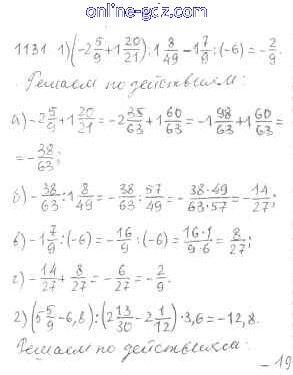 online-gdz.com
1131 1) (-2 5/9 + 1 20/21) : 1 8/49 - 1 7/9 : (-6) = - 2/9.
Решаем по действиям:
а) -2 5/9 + 1 20/21 = -2 35/63 + 1 60/63 = -1 98/63 + 1 60/63 =
= - 38/63;
б) - 38/63 : 1 8/49 = - 38/63 : 57/49 = - 38·49/63·57 = - 14/27;
в) -1 7/9 : (-6) = - 16/9 : (-6) = 16·1/9·6 = 8/27;
г) - 14/27 + 8/27 = - 6/27 = - 2/9.
2) (5 5/9 - 6,8) : (2 13/30 - 2 1/12) · 3,6 = -12,8.
Решаем по действиям:
-19